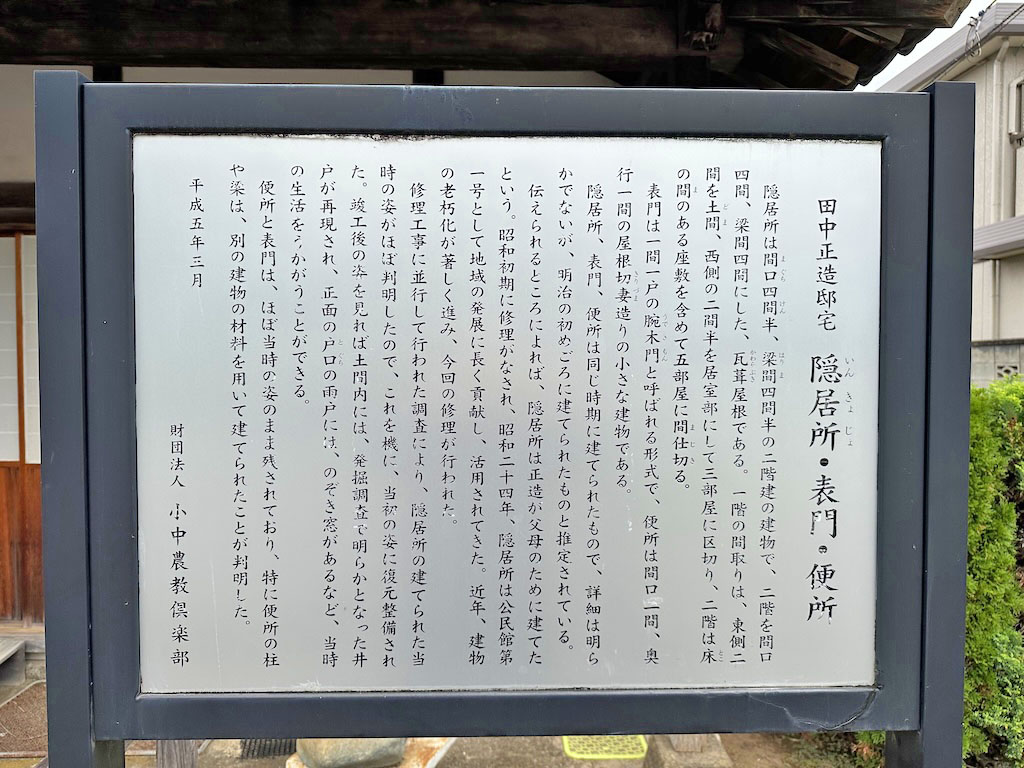 田中正造邸宅　隠居所・表門・便所
隠居所は間口四間半、梁間四間半の二階建の建物で、二階を間口
四間、梁間四間にした、瓦葺屋根である。一階の間取りは、東側二
間を土間、西側の二間半を居室部にして三部屋に区切り、二階は床
の間のある座敷を含めて五部屋に間仕切る。
表門は一間一戸の腕木門と呼ばれる形式で、便所は間口一間、奥
行一間の屋根切妻造りの小さな建物である。
隠居所、表門、便所は同じ時期に建てられたもので、詳細は明ら
かでないが、明治の初めごろに建てられたものと推定されている。
伝えられるところによれば、隠居所は正造が父母のために建てた
という。昭和初期に修理がなされ、昭和二十四年、隠居所は公民館第
一号として地域の発展に長く貢献し、活用されてきた。近年、建物
の老朽化が著しく進み、今回の修理が行われた。
修理工事に並行して行われた調査により、隠居所の建てられた当
時の姿がほぼ判明したので、これを機に、当初の姿に復元整備され
た。竣工後の姿を見れば土間内には、発掘調査で明らかとなった井
戸が再現され、正面の戸口の雨戸には、のぞき窓があるなど、当時
の生活をうかがうことができる。
便所と表門は、ほぼ当時の姿のまま残されており、特に便所の柱
や梁は、別の建物の材料を用いて建てられたことが判明した。
平成五年三月
財団法人　小中農教倶楽部